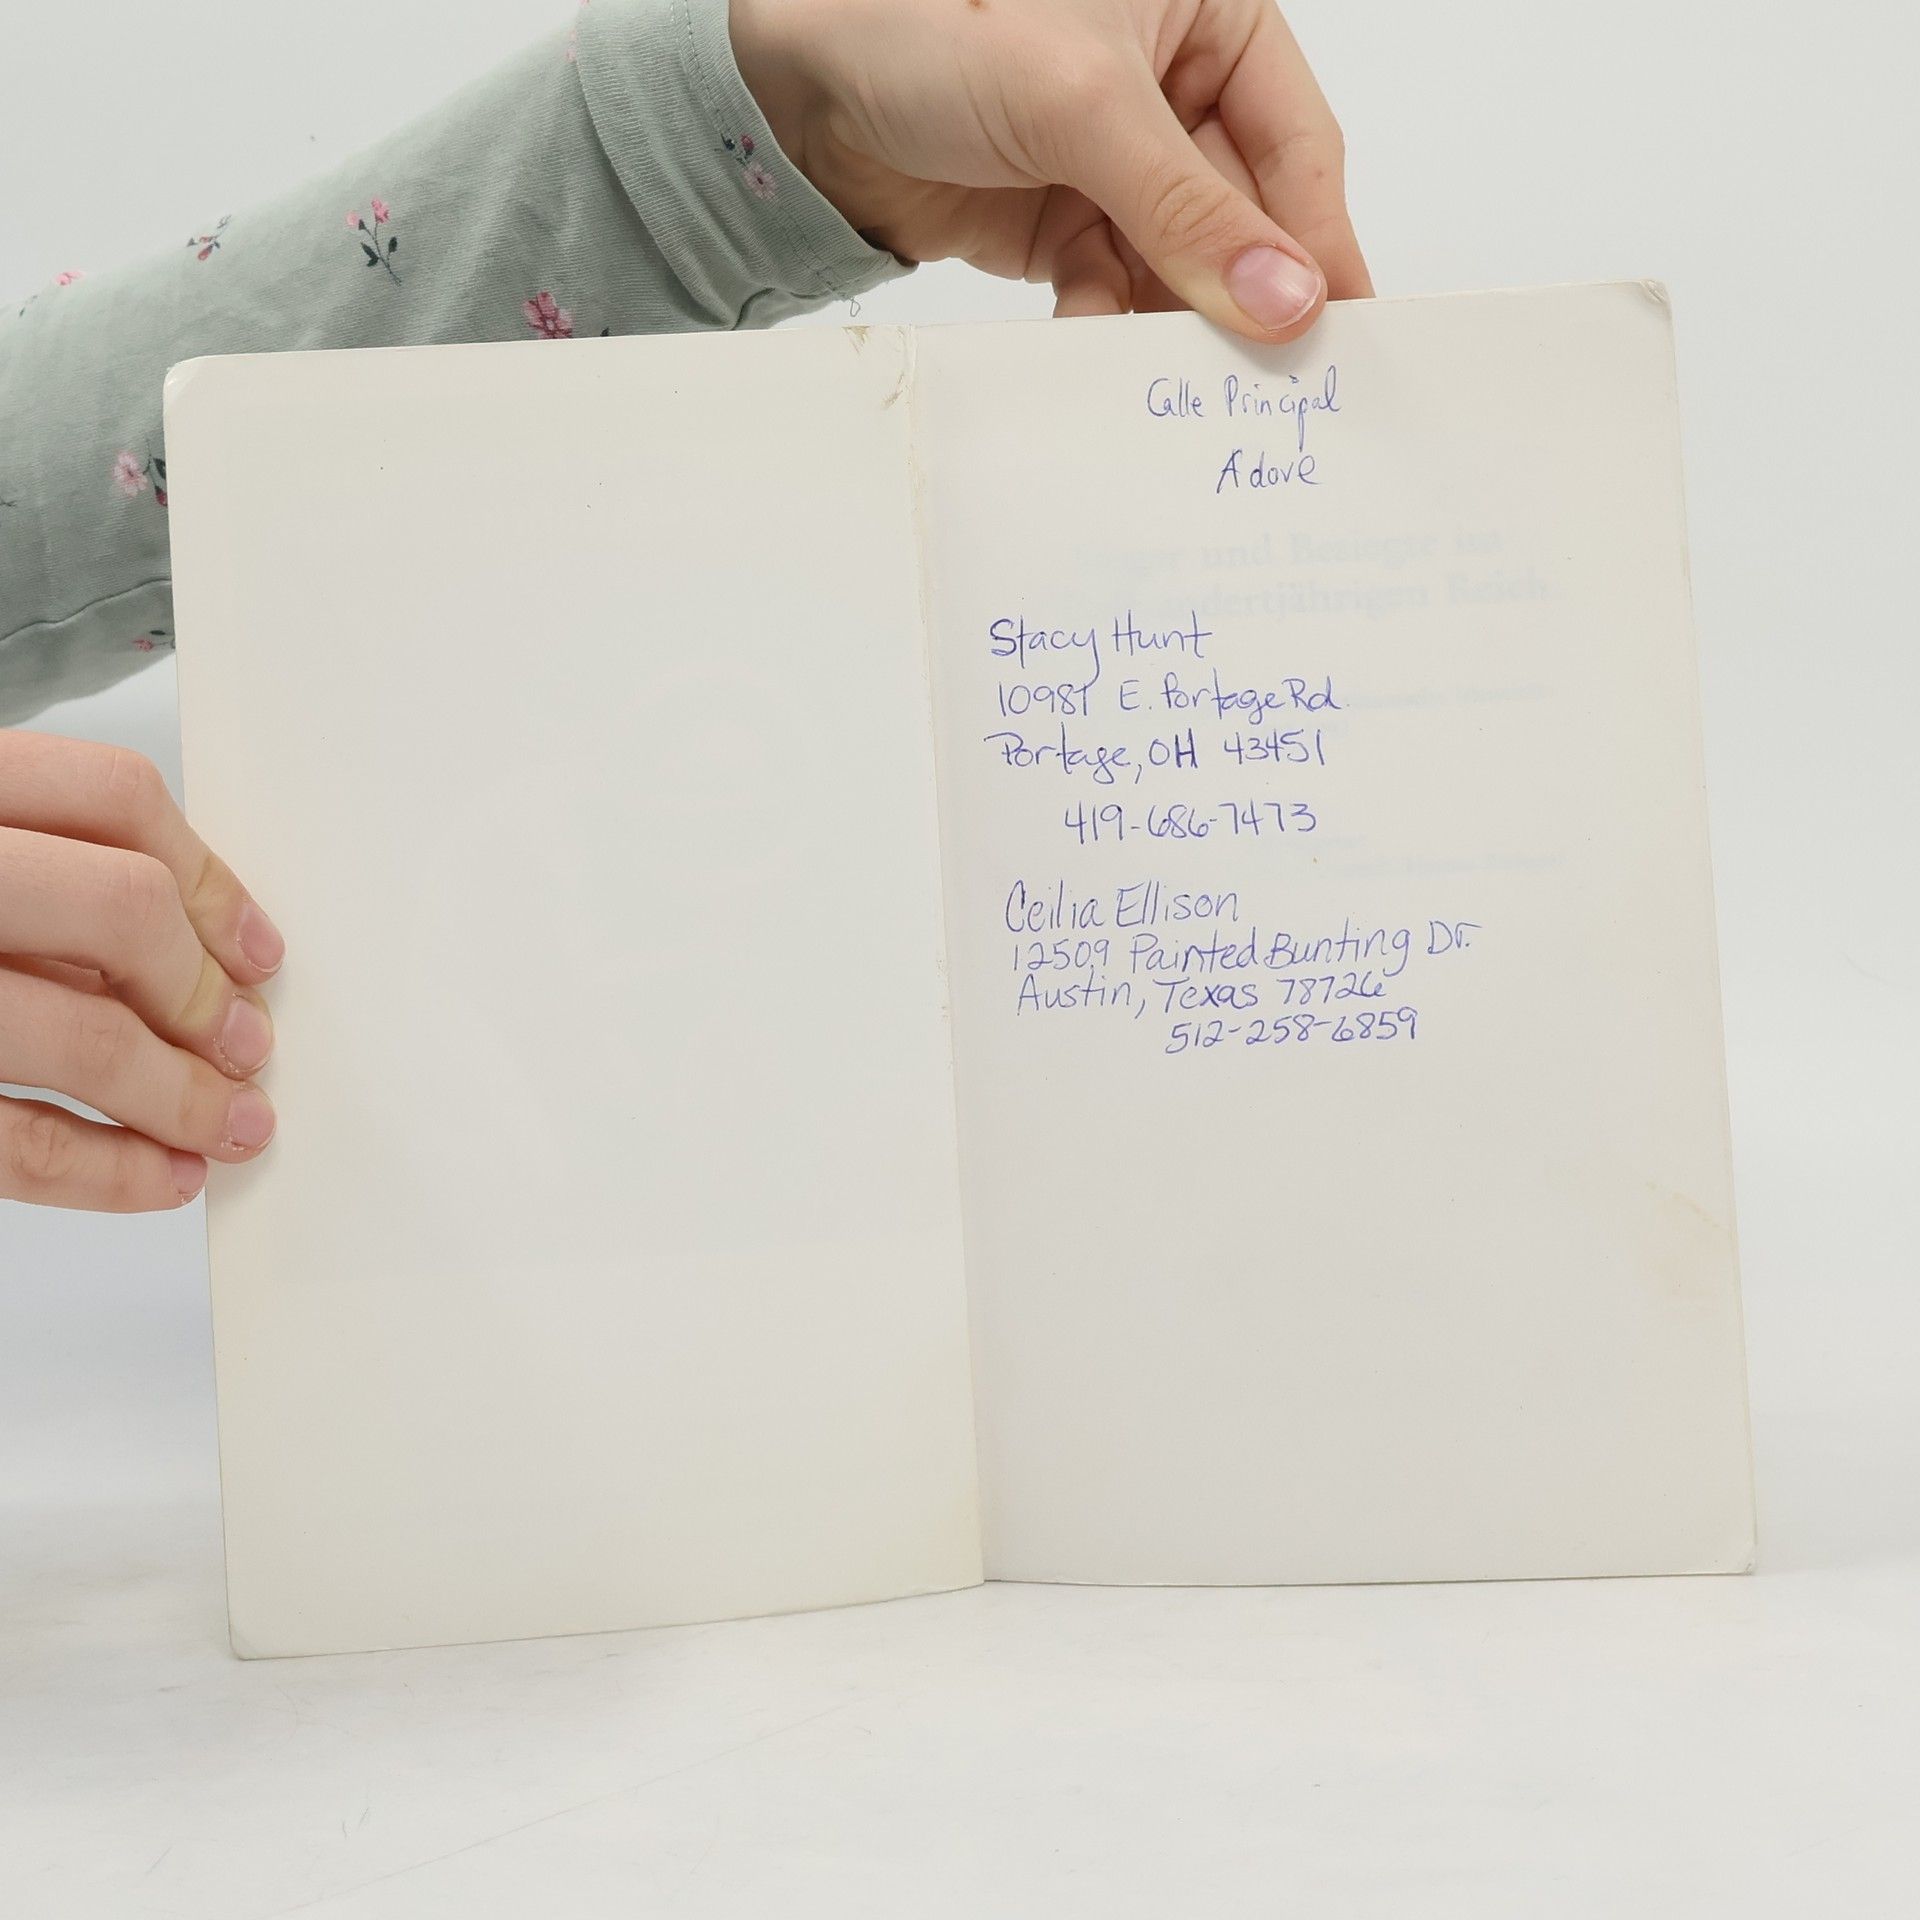 Calle Principal
Adove
und Besiegte im
Reich
Stacy Hunt
10981 E. Portage Rd.
Portage, OH 43451
419-686-7473
Ceilia Ellison
12509 Painted Bunting Dr.
Austin, Texas 78726
512-258-6859